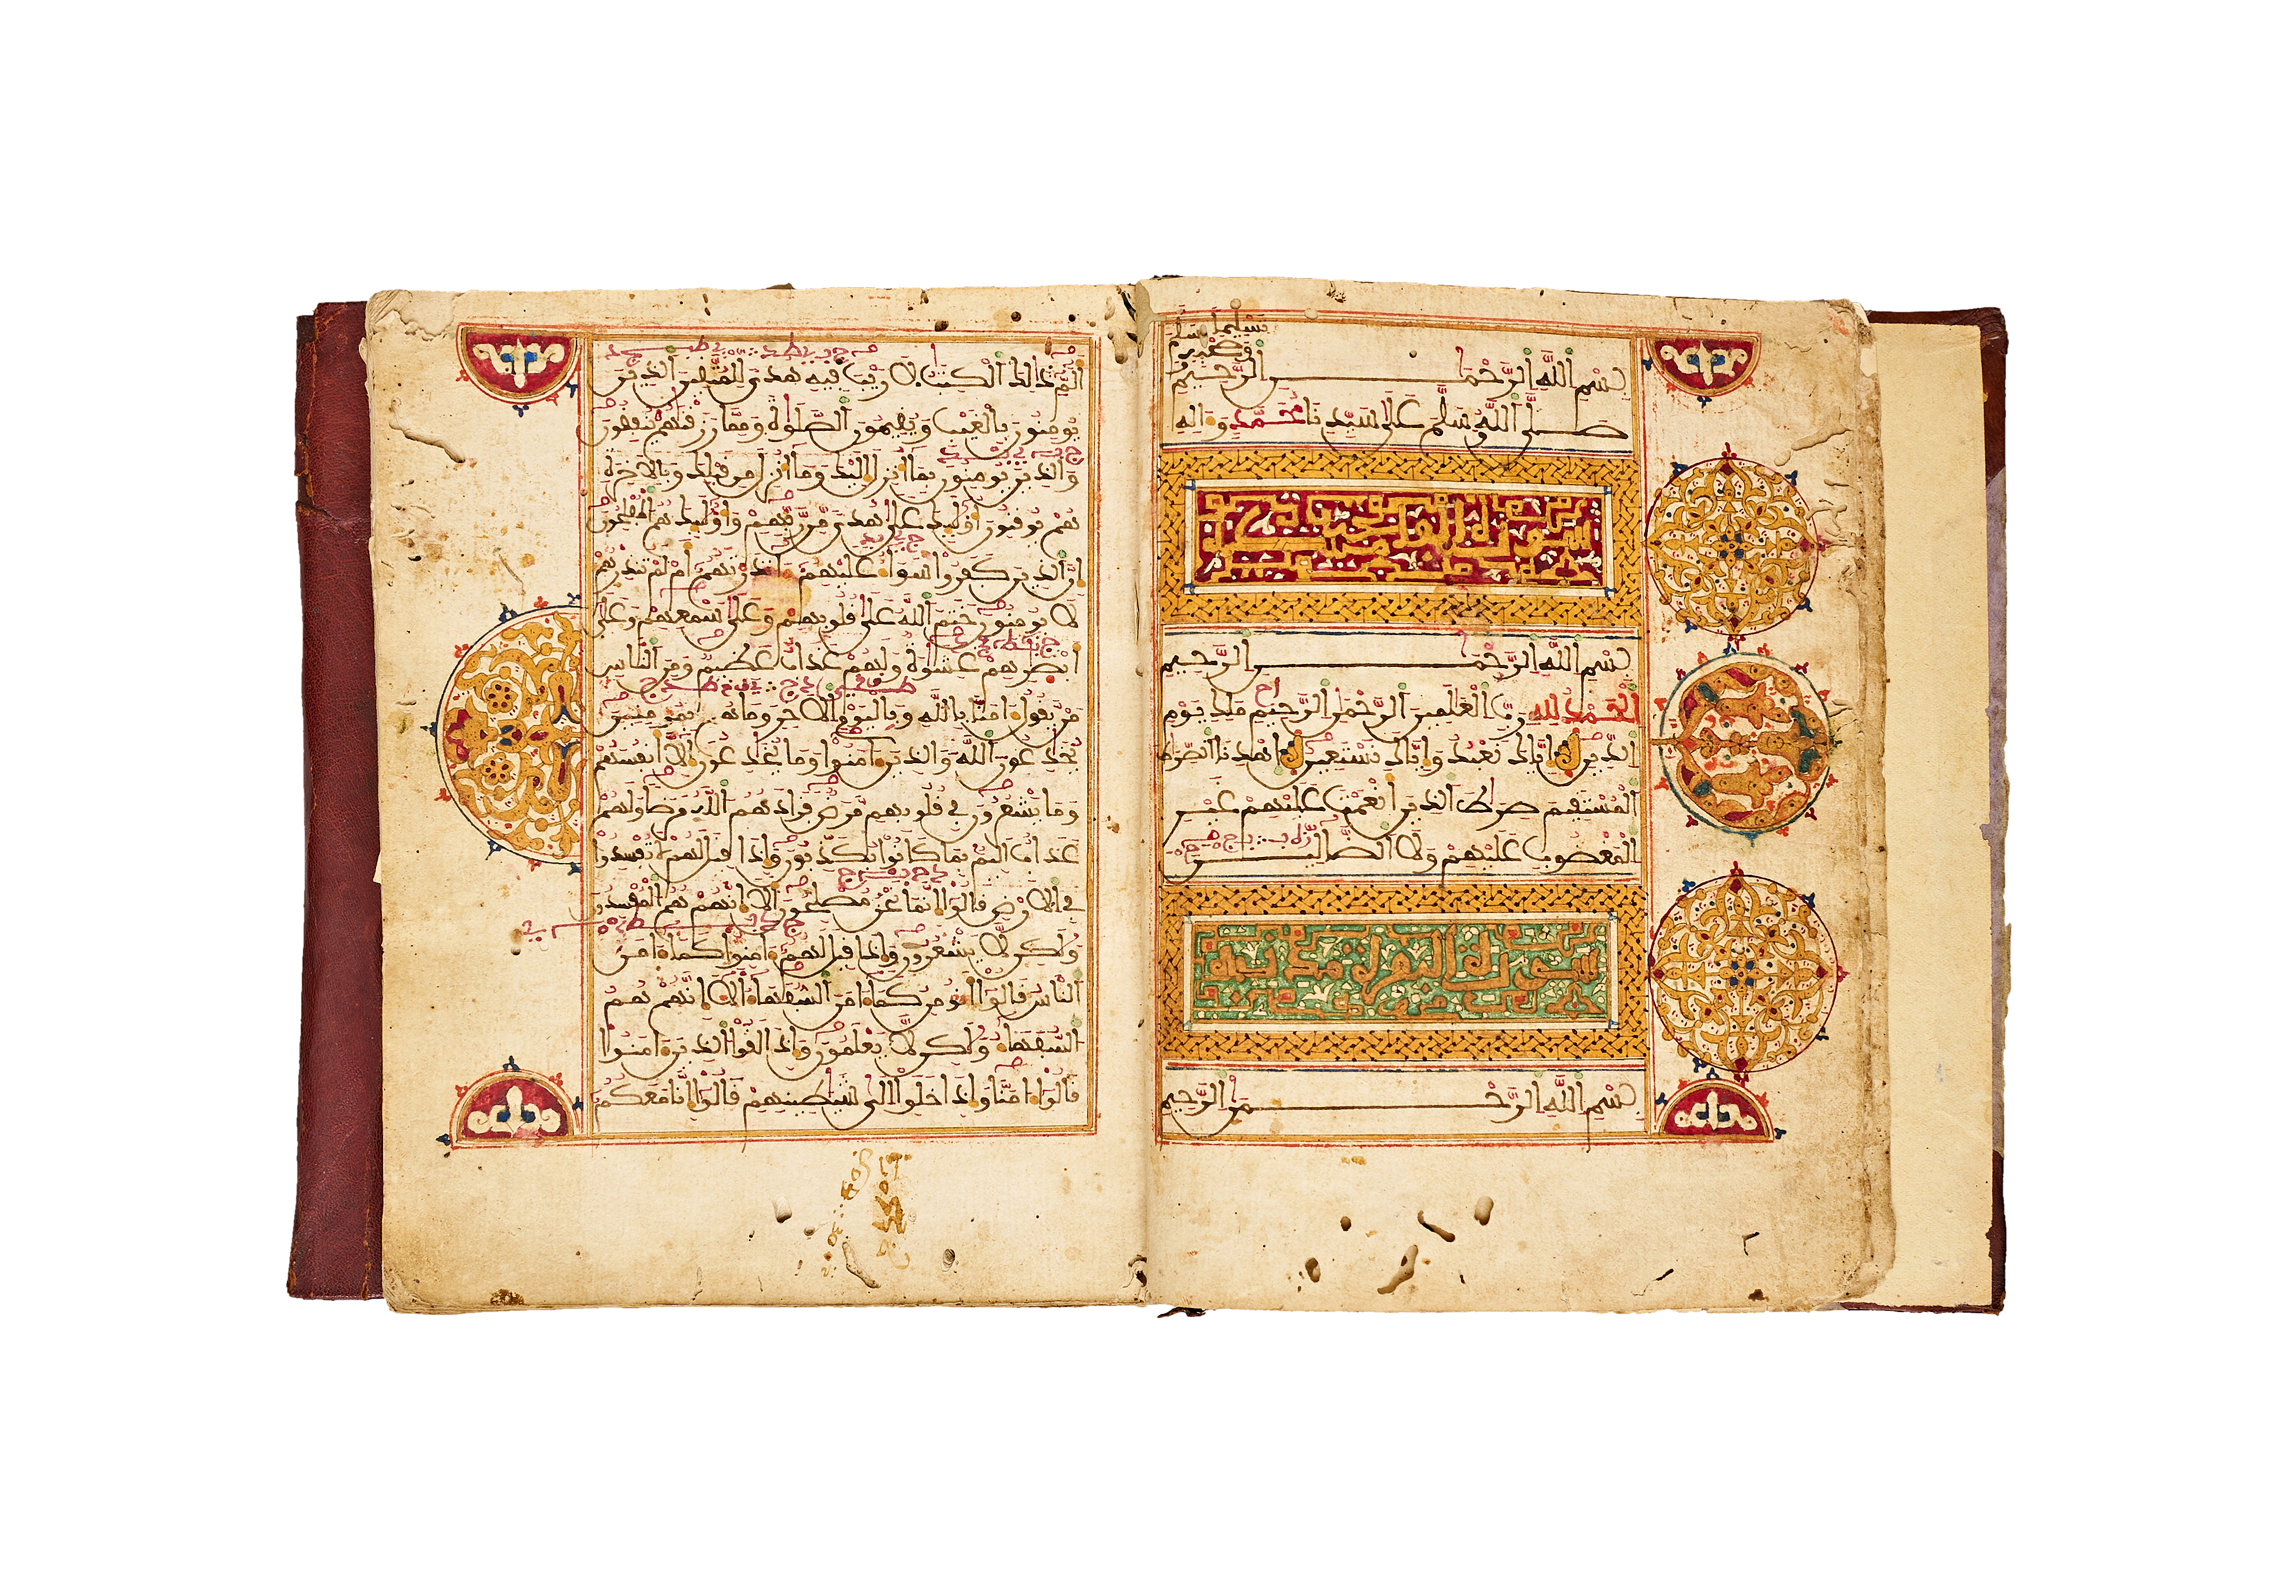 تسليما
بسم الله الرحمن الرحيم
صلى الله وسلم على سيدنا محمد وءاله
سورة
بسم الله الرحمن الرحيم
الحمد لله رب العلمين الرحمن الرحيم ملك يوم
الدين اياك نعبد واياك نستعين اهدنا الصرط
المستقيم صرط الذين انعمت عليهم غير
المغضوب عليهم ولا الضالين
سورة البقرة مدنية
بسم الله الرحمن الرحيم
الم ذلك الكتب لا ريب فيه هدى للمتقين الذين
يومنون بالغيب ويقيمون الصلوة ومما رزقنهم ينفقون
والذين يومنون بما انزل اليك وما انزل من قبلك وبالاخرة
هم يوقنون اوليك على هدى من ربهم واوليك هم المفلحون
ان الذين كفروا سواء عليهم ءانذرتهم ام لم تنذرهم
لا يومنون ختم الله على قلوبهم وعلى سمعهم وعلى
ابصرهم غشوة ولهم عذاب عظيم ومن الناس
من يقول ءامنا بالله وباليوم الاخر وما هم بمومنين
يخدعون الله والذين ءامنوا وما يخدعون الا انفسهم
وما يشعرون في قلوبهم مرض فزادهم الله مرضا ولهم
عذاب اليم بما كانوا يكذبون واذا قيل لهم لا تفسدوا
في الارض قالوا انما نحن مصلحون الا انهم هم المفسدون
ولكن لا يشعرون واذا قيل لهم ءامنوا كما ءامن
الناس قالوا انومن كما ءامن السفهاء الا انهم هم
السفهاء ولكن لا يعلمون واذا لقوا الذين ءامنوا
قالوا ءامنا واذا خلوا الى شيطينهم قالوا انا معكم